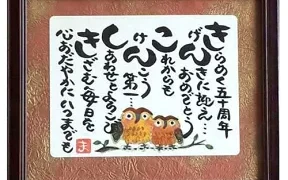 きらめく五十周年
げんきに迎え…
おめでとう
これからも
けんこう第一…
しあわせとよろこび
きざむ毎日を
心おだやかにいつまでも
ま